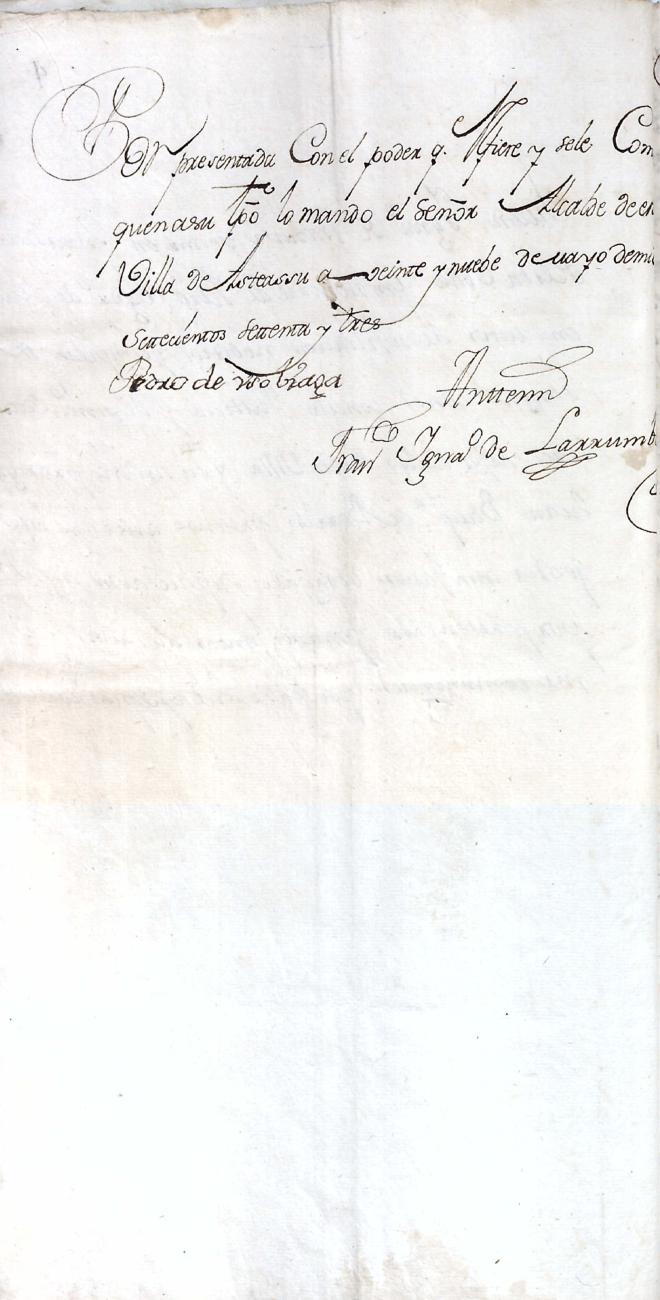 Por presentada Con el poder q.e Rfiere y sele Com
quen a su tpō lo mando el Señor Alcalde de
Villa de Asteassu a veinte y nuebe de mayo de mil
Setecientos settenta y tres
Pedro de
Anttemi
Fran.co Ygna.o de Larrumb